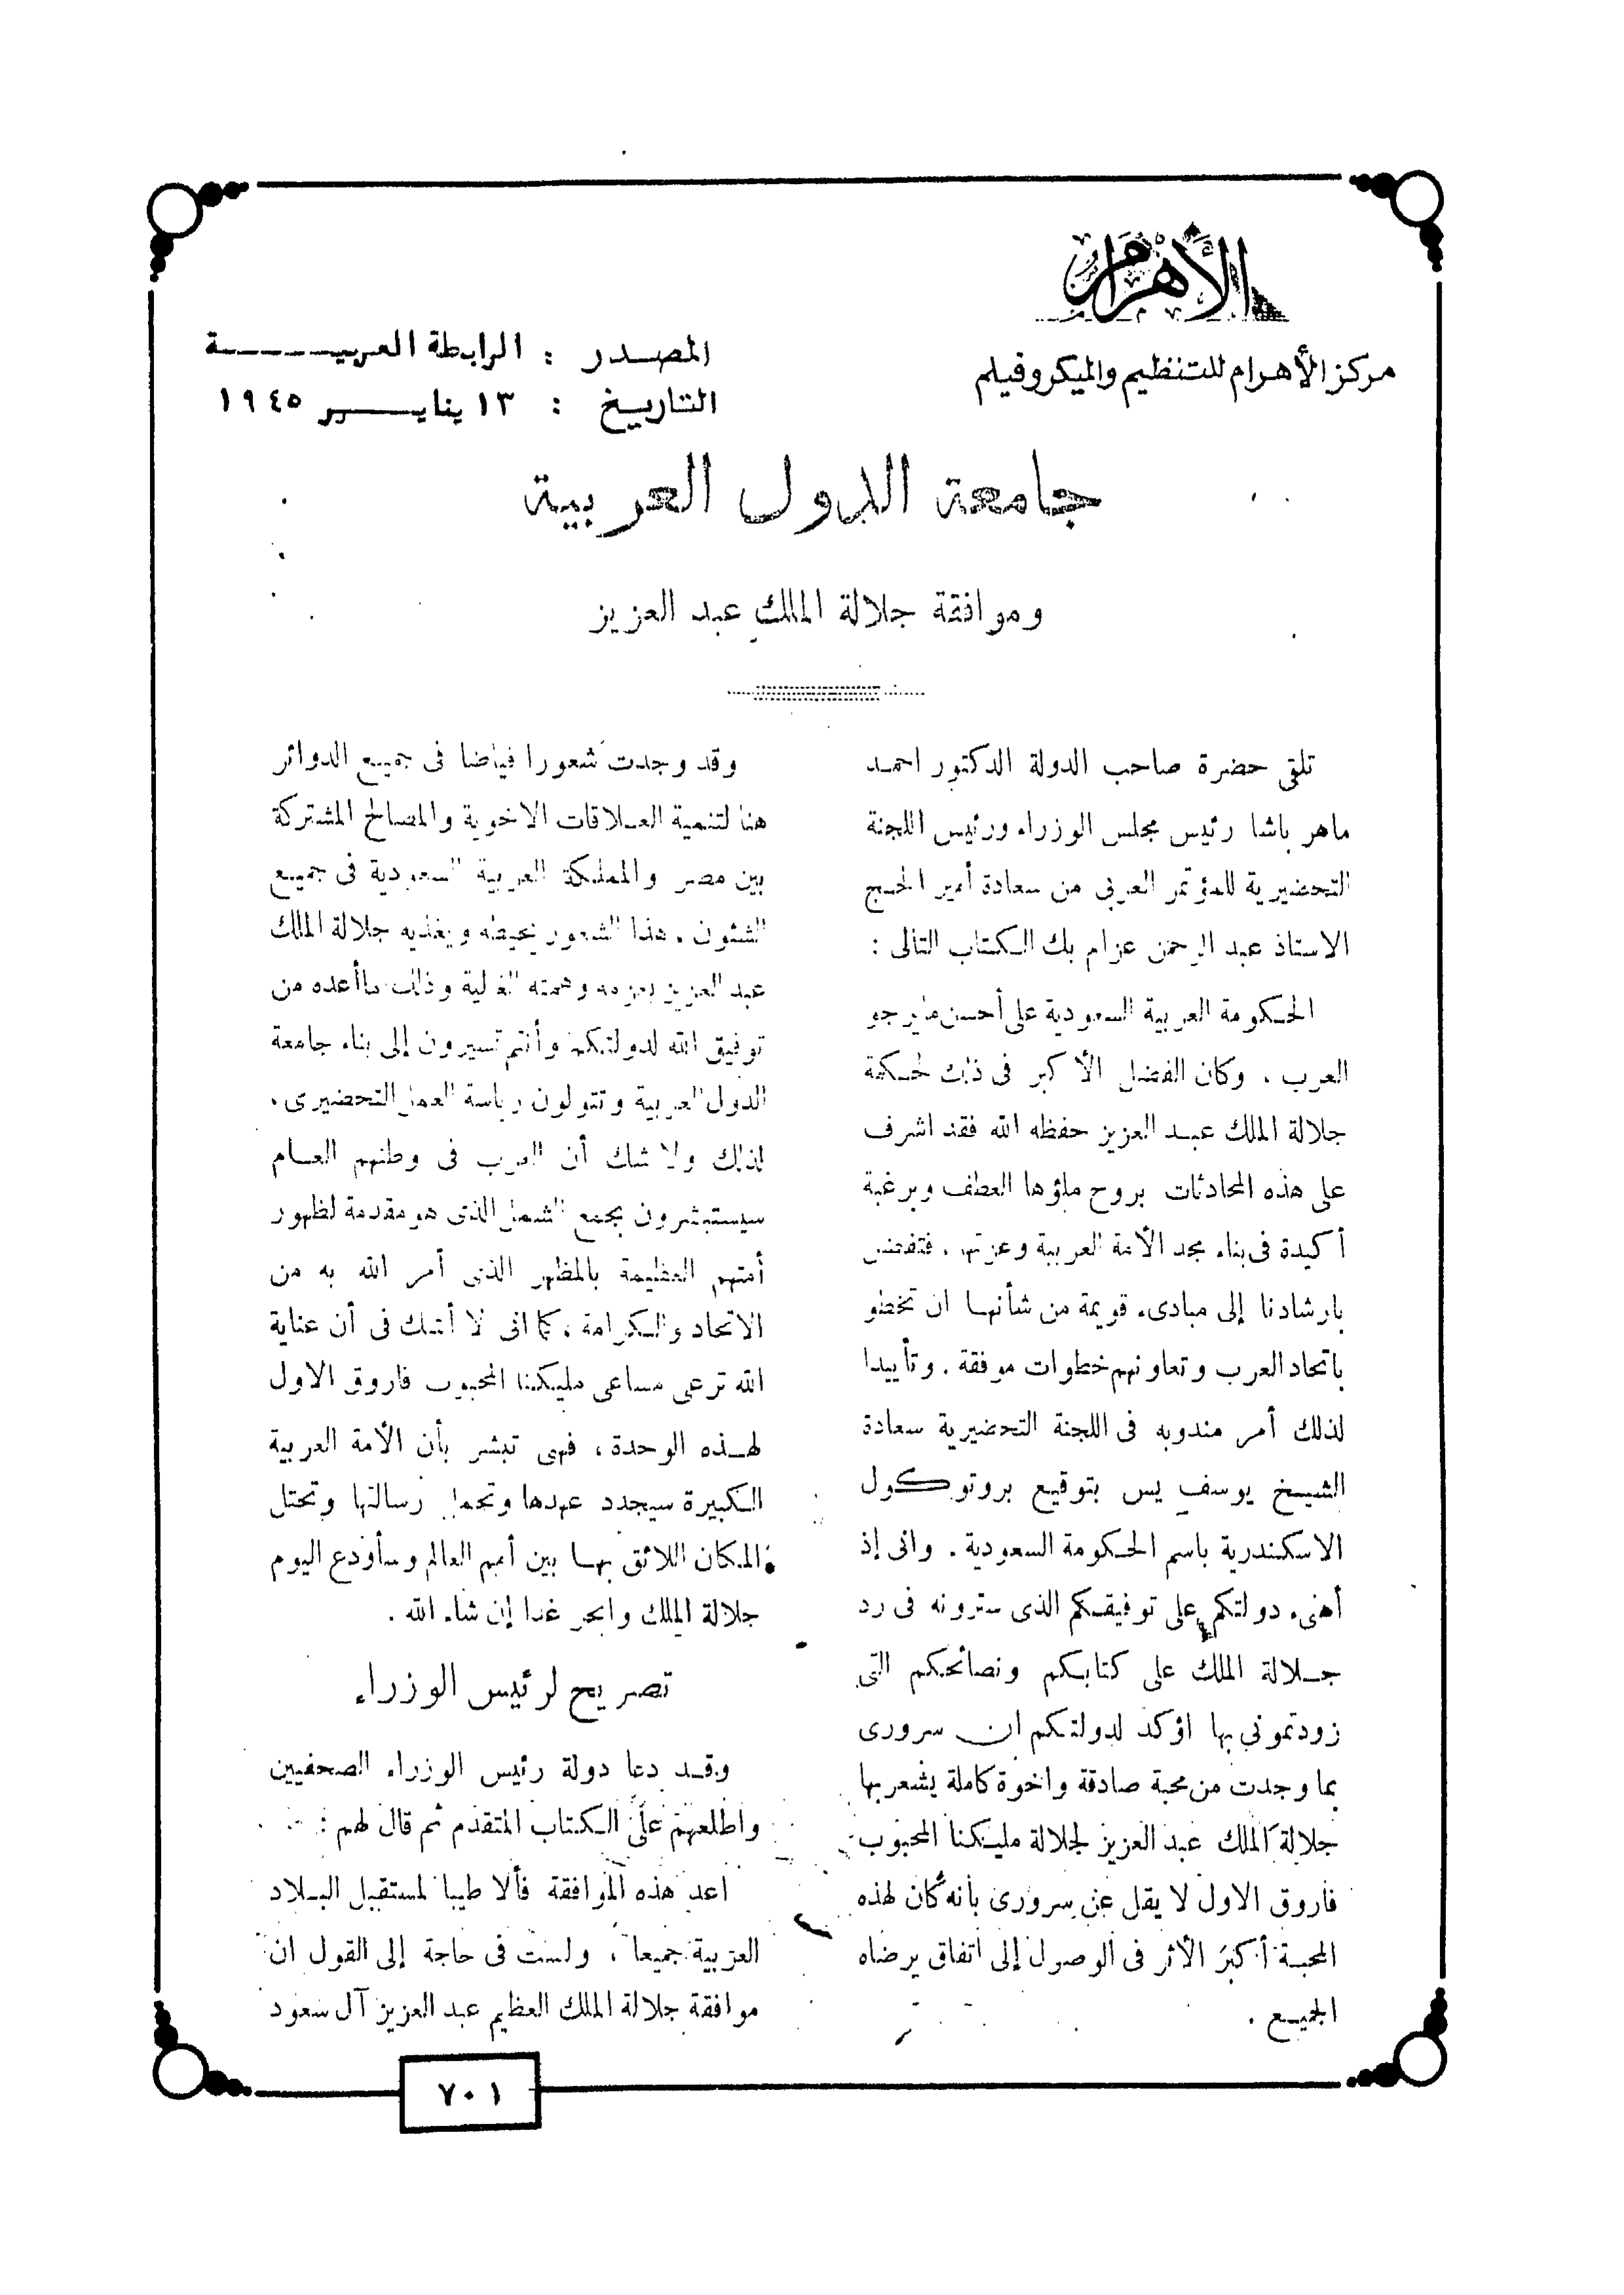 الأهرام
مركز الأهرام للتنظيم والميكروفيلم
المصدر : الرابطة العربية
التاريخ : ١٣ يناير ١٩٤٥
جامعة الدول العربية
وموافقة جلالة الملك عبد العزيز
تلقى حضرة صاحب الدولة الدكتور احمد
ماهر باشا رئيس مجلس الوزراء ورئيس اللجنة
التحضيرية للمؤتمر العربى من سعادة أمير الحج
الاستاذ عبد الرحمن عزام بك الكتاب التالى :
الحكومة العربية السعودية على أحسن ما يرجو
العرب . وكان الفضل الأكبر فى ذلك لحكمة
جلالة الملك عبد العزيز حفظه الله فقد اشرف
على هذه المحادثات بروح ملؤها العطف وبرغبة
أكيدة فى بناء مجد الأمة العربية وعزتها . فتفضل
بارشادنا إلى مبادىء قويمة من شأنها ان تخطو
باتحاد العرب وتعاونهم خطوات موفقة . وتأييدا
لذلك أمر مندوبه فى اللجنة التحضيرية سعادة
الشيخ يوسف يس بتوقيع بروتوكول
الاسكندرية باسم الحكومة السعودية . وانى إذ
أهنىء دولتكم على توفيقكم الذى سترونه فى رد
جلالة الملك على كتابكم ونصائحكم التى
زودتمونى بها اؤكد لدولتكم ان سرورى
بما وجدت من محبة صادقة واخوة كاملة يشعر بها
جلالة الملك عبد العزيز لجلالة مليكنا المحبوب
فاروق الاول لا يقل عن سرورى بأنه كان لهذه
المحبة أكبر الأثر فى الوصول إلى اتفاق يرضاه
الجميع .
وقد وجدت شعورا فياضا فى جميع الدوائر
هنا لتنمية العلاقات الاخوية والمصالح المشتركة
بين مصر والمملكة العربية السعودية فى جميع
الشئون . هذا الشعور يحيطه ويغذيه جلالة الملك
عبد العزيز بعزمه وهمته العالية وذلك ما أعده من
توفيق الله لدولتكم وأنتم تسيرون إلى بناء جامعة
الدول العربية وتتولون رياسة العمل التحضيرى .
لذلك ولا شك أن العرب فى وطنهم العام
سيستبشرون بجمع الشمل الذى هو مقدمة لظهور
أمتهم العظيمة بالمظهر الذى أمر الله به من
الاتحاد والكرامة ، كما انى لا أشك فى أن عناية
الله ترعى مساعى مليكنا المحبوب فاروق الاول
لهذه الوحدة ، فهى تبشر بأن الأمة العربية
الكبيرة سيجدد عهدها وتحمل رسالتها وتحتل
المكان اللائق بها بين أمم العالم وسأودع اليوم
جلالة الملك وابحر غدا إن شاء الله .
تصريح لرئيس الوزراء
وقد دعا دولة رئيس الوزراء الصحفيين
واطلعهم على الكتاب المتقدم ثم قال لهم :
اعد هذه الموافقة فألا طيبا لمستقبل البلاد
العربية جميعا ، ولست فى حاجة إلى القول ان
موافقة جلالة الملك العظيم عبد العزيز آل سعود
٧٠١